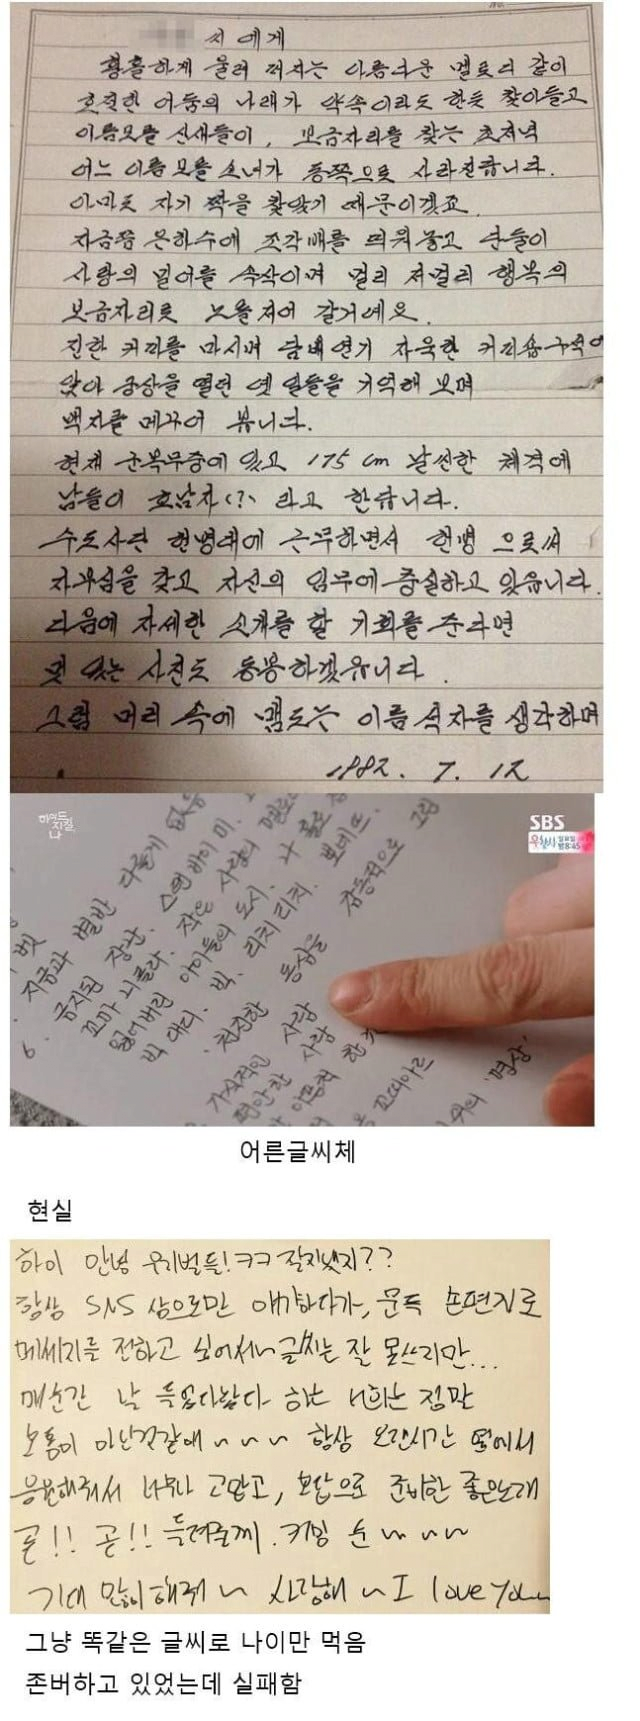 씨 에게
황홀하게 울려 퍼지는 아름다운 멜로디 같이
호젓한 어둠의 나래가 약속이라도 한듯 찾아들고
이름모를 산새들이, 보금자리를 찾는 초저녁
어느 이름 모를 소녀가 동쪽으로 사라진답니다.
아마도 자기 짝을 찾았기 때문이겠죠.
지금쯤 은하수에 조각배를 띄워놓고 단둘이
사랑의 밀어를 속삭이며 멀리 저멀리 행복의
보금자리로 노를저어 갈거예요.
진한 커피를 마시며 담배연기 자욱한 커피숍구석에
앉아 궁상을 떨던 옛 일들을 기억해 보며
백지를 메꾸어 봅니다.
현재 군복무중에 있고 175cm 날씬한 체격에
남들이 호남자(?) 라고 한답니다.
수도사단 헌병대에 근무하면서 헌병 으로써
자부심을 갖고 자신의 임무에 충실하고 있읍니다.
다음에 자세한 소개를 할 기회를 준다면
멋 있는 사진도 동봉하겠읍니다.
그럼 머리 속에 맴도는 이름 석자를 생각하며
1982. 7. 12
하이드 지킬, 나
SBS
일요일
밤8:45
지금과 별반 다를게 없
6. 금지된 장난.
꼬마 니콜라. 작은 사랑의 멜로
잃어버린 아이들의 도시. 나 홀로
빅 대디. 빅. 리치리치. 포네뜨.
천진한 동심을 감동적으로 그
가식적인 사랑
편안한 사랑
꼬띠아르
위의 '명상'
어른글씨체
현실
하이 안녕 우리벌들!ㅋㅋ 잘지냈지??
항상 SNS 상으로만 얘기하다가, 문득 손편지로
메세지를 전하고 싶어서~ 글씨는 잘 못쓰지만...
매순간 날 들었다놨다 하는 너희는 정말
보통이 아닌것같애~~~ 항상 오랜시간 옆에서
응원해줘서 너무나 고맙고, 보답으로 준비한 좋은노래
곧!! 곧!! 들려줄께. 커밍 순~~~
기대 많이해줘~ 사랑해~ I love you~
그냥 똑같은 글씨로 나이만 먹음
존버하고 있었는데 실패함